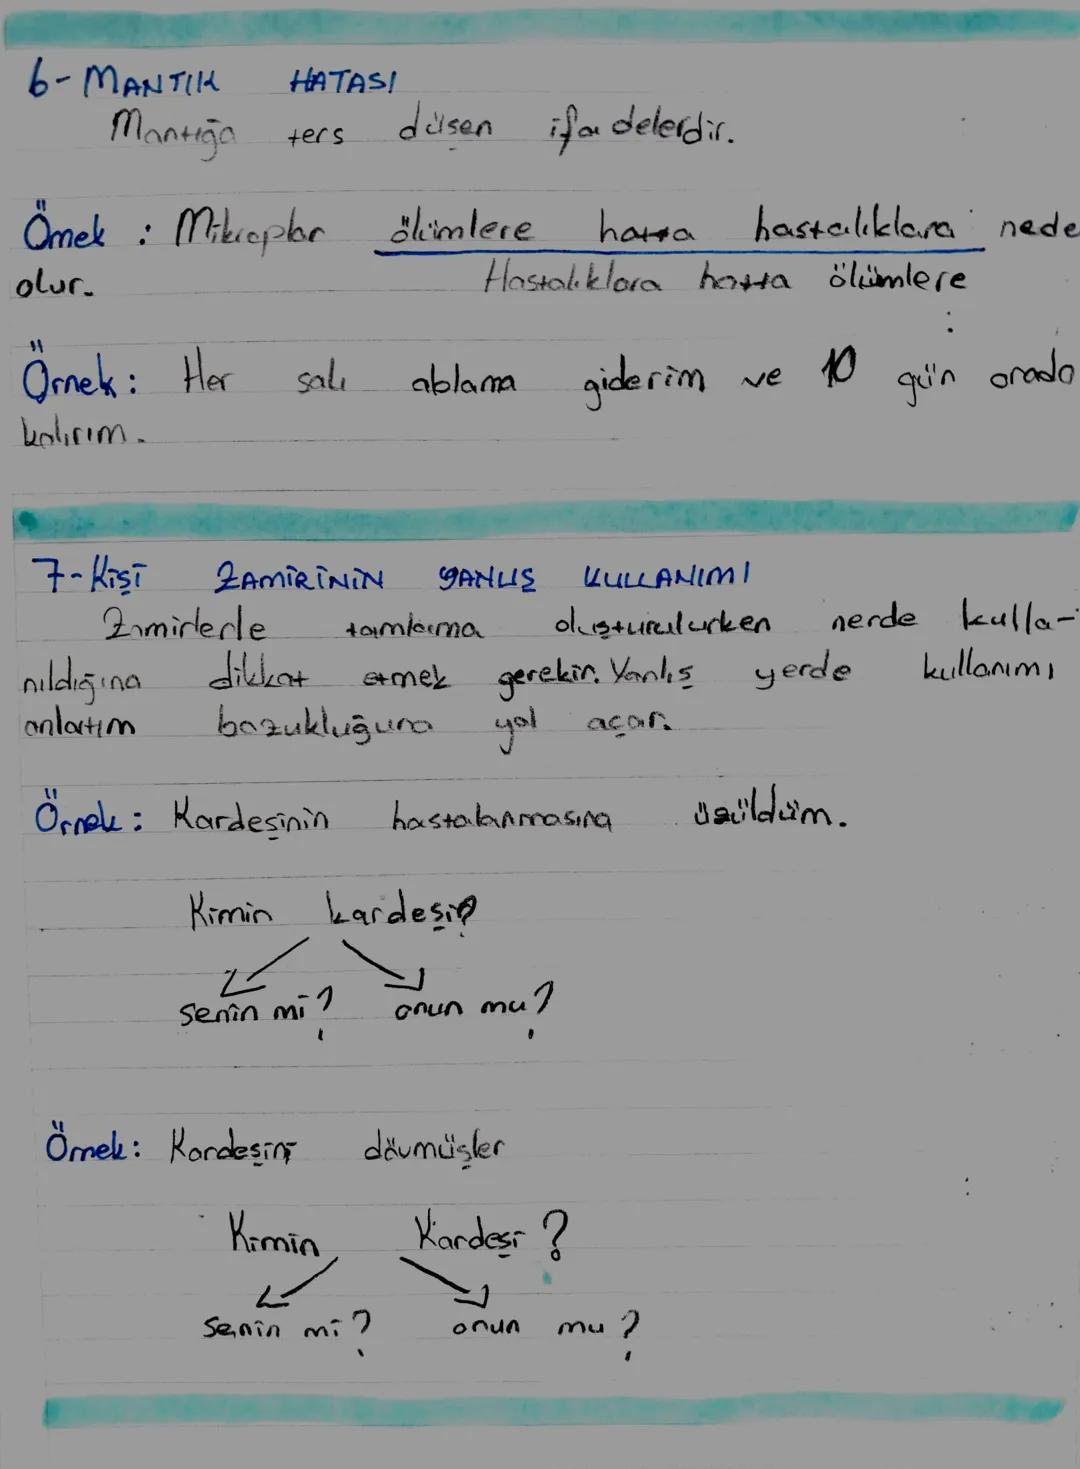 6- MANTIK HATASI
Mantığa ters düşen ifadelerdir.
Örnek : Mikroplar ölümlere hatta hastalıklara nede
olur.
Hastalıklara hatta ölümlere
Örnek: Her salı ablama giderim ve 10 gün orada
kalırım.
7- Kişi ZAMİRİNİN YANLIŞ KULLANIMI
Zamirlerle tamlama oluşturulurken nerde kulla-
nıldığına dikkat etmek gerekir. Yanlış yerde kullanımı
anlatım bozukluğuna yol açar.
Örnek: Kardeşinin hastalanmasına üzüldüm.
Kimin kardeşi?
senin mi? onun mu?
Örnek: Kardeşini dövmüşler
Kimin Kardeşi?
senin mi? onun mu?